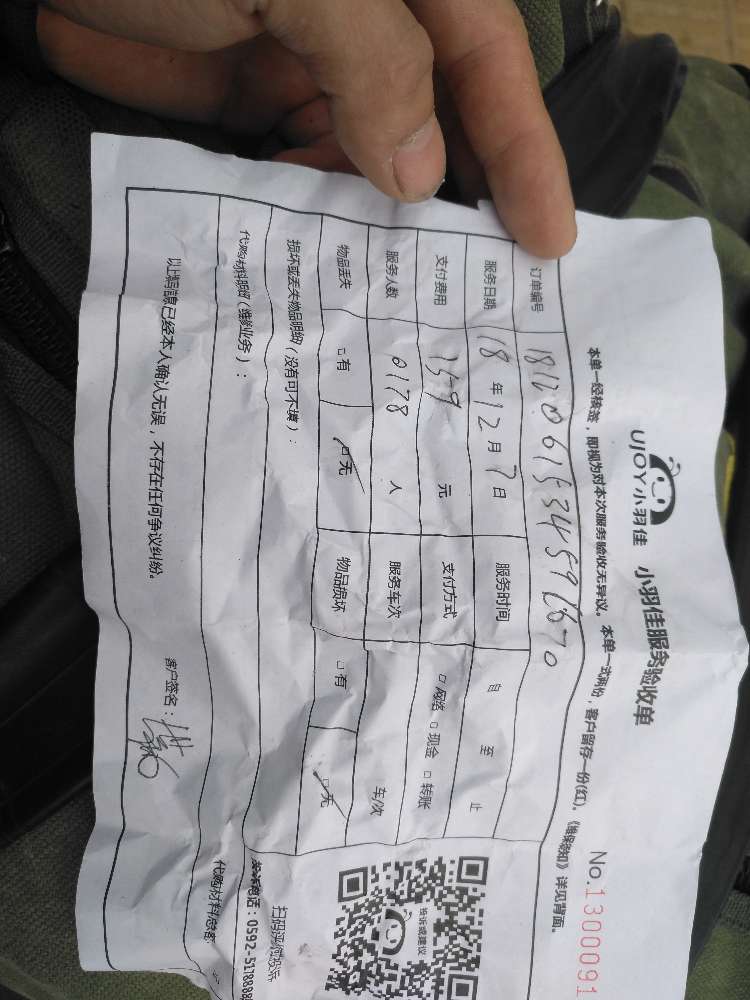 UJOY小羽佳 小羽佳服务验收单
No.1300091
本单一经核签，即视为对本次服务验收无异议。本单一式两份，客户留存一份(红)。《维保须知》详见背面。
订单编号
服务日期 18年12月7日 服务时间 自 至 止
支付费用 元 支付方式 □网络 □现金 □转账
服务人数 0178 人 服务车次 车/次
物品丢失 □有 □无 物品损坏 □有 □无
损坏或丢失物品明细(没有可不填)：
代购材料明细(维修业务)：
代购材料总客
以上信息已经本人确认无误，不存在任何争议纠纷。
客户签名：
投诉或建议
扫码评价投诉
投诉电话：0592-5118888